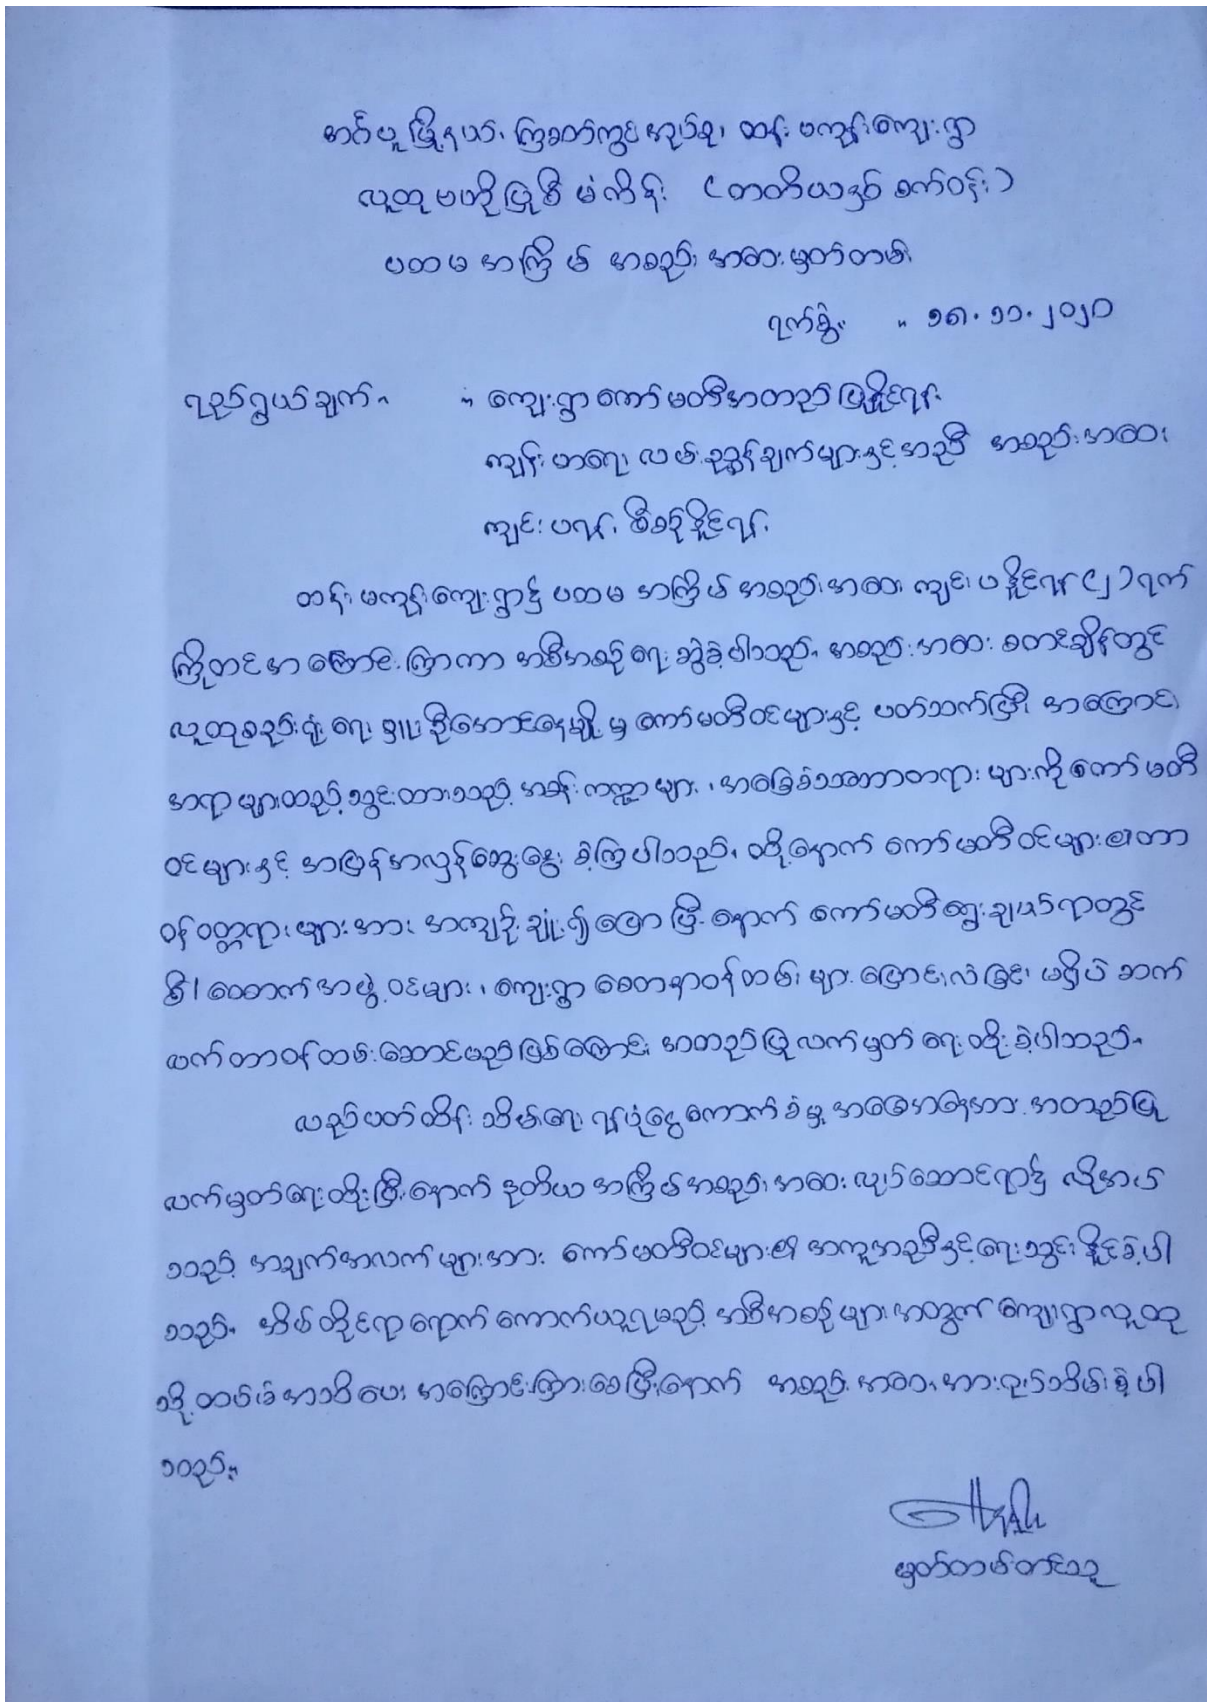 အင်္ဂပူမြို့နယ်၊ ကြခတ်ကွင်းအုပ်စု၊ ထန်းမကျန်းကျေးရွာ
လူထုဗဟိုပြုစီမံကိန်း (တတိယနှစ် စက်ဝန်း)
ပထမအကြိမ် အစည်းအဝေးမှတ်တမ်း
ရက်စွဲ။ ။ ၁၈.၁၁.၂၀၂၀
ရည်ရွယ်ချက်။ ။ ကျေးရွာကော်မတီအတည်ပြုနိုင်ရန်၊
ကျန်းမာရေး လမ်းညွှန်ချက်များနှင့်အညီ အစည်းအဝေး
ကျင်းပရန် စီစဉ်နိုင်ရန်၊
ထန်းမကျန်းကျေးရွာ၌ ပထမအကြိမ် အစည်းအဝေး ကျင်းပနိုင်ရန် (၂) ရက်
ကြိုတင်အကြောင်းကြားကာ အစီအစဉ်ရေးဆွဲခဲ့ပါသည်။ အစည်းအဝေးစတင်ချိန်တွင်
လူထုစည်းရုံးရေးမှူး ဦးအောင်နေမျိုးမှ ကော်မတီဝင်များနှင့် ပတ်သက်ပြီး အကြောင်း
အရာများထည့်သွင်းထားသည့် အခန်းကဏ္ဍများ၊ အခြေခံသဘောတရားများကို ကော်မတီ
ဝင်များနှင့် အပြန်အလှန်ဆွေးနွေးခဲ့ကြပါသည်။ ထို့နောက် ကော်မတီဝင်များ၏တာ
ဝန်ဝတ္တရားများအား အကျဉ်းချုံး၍ပြောပြီးနောက် ကော်မတီရွေးချယ်ရာတွင်
စီ/ထောက်အဖွဲ့ဝင်များ၊ ကျေးရွာစေတနာ့ဝန်ထမ်းများ ပြောင်းလဲခြင်းမရှိပဲ ဆက်
လက်တာဝန်ထမ်းဆောင်မည်ဖြစ်ကြောင်း အတည်ပြုလက်မှတ်ရေးထိုးခဲ့ပါသည်။
လည်ပတ်ထိန်းသိမ်းရေးရန်ပုံငွေကောက်ခံမှုအခြေအနေအား အတည်ပြု
လက်မှတ်ရေးထိုးပြီးနောက် ဒုတိယအကြိမ်အစည်းအဝေးလုပ်ဆောင်ရာ၌ လိုအပ်
သည့် အချက်အလက်များအား ကော်မတီဝင်များ၏ အကူအညီနှင့်ရေးသွင်းနိုင်ခဲ့ပါ
သည်။ အိမ်တိုင်ရာရောက်ကောက်ယူရမည့် အစီအစဉ်များအတွက် ကျေးရွာလူထု
သို့ ထပ်မံအသိပေး အကြောင်းကြားစေပြီးနောက် အစည်းအဝေးအား ရုပ်သိမ်းခဲ့ပါ
သည်။
မှတ်တမ်းတင်သူ